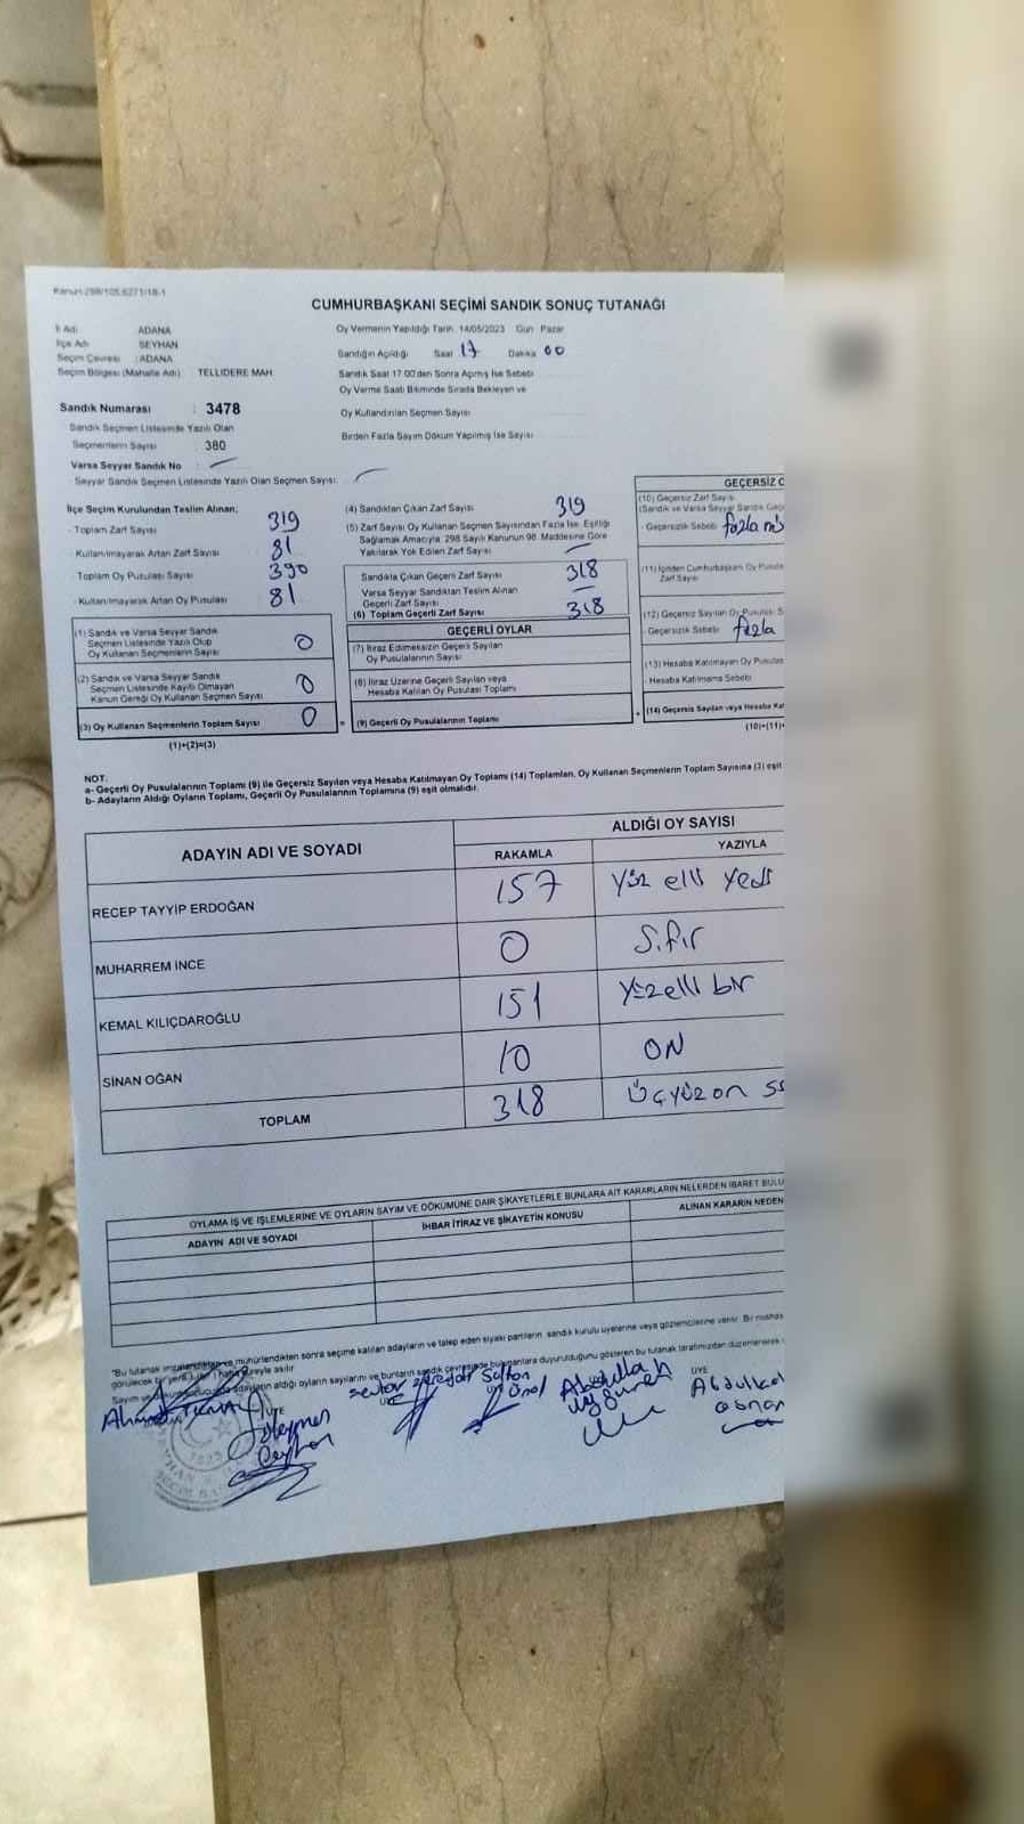 Kanun 298/105,6271/18-1
CUMHURBAŞKANI SEÇİMİ SANDIK SONUÇ TUTANAĞI
İl Adı ADANA
İlçe Adı SEYHAN
Seçim Çevresi : ADANA
Seçim Bölgesi (Mahalle Adı) TELLIDERE MAH.
Oy Vermenin Yapıldığı Tarih 14/05/2023 Gün Pazar
Sandığın Açıldığı Saat 17 Dakika 00
Sandık Saat 17.00'den Sonra Açılmış İse Sebebi
Oy Verme Saati Bitiminde Sırada Bekleyen ve
Oy Kullandırılan Seçmen Sayısı
Birden Fazla Sayım Döküm Yapılmış İse Sayısı
Sandık Numarası : 3478
Sandık Seçmen Listesinde Yazılı Olan
Seçmenlerin Sayısı 380
Varsa Seyyar Sandık No
Seyyar Sandık Seçmen Listesinde Yazılı Olan Seçmen Sayısı:
İlçe Seçim Kurulundan Teslim Alınan;
- Toplam Zarf Sayısı 319
- Kullanılmayarak Artan Zarf Sayısı 81
Toplam Oy Pusulası Sayısı 390
- Kullanılmayarak Artan Oy Pusulası 81
(1) Sandık ve Varsa Seyyar Sandık
Seçmen Listesinde Yazılı Olup
Oy Kullanan Seçmenlerin Sayısı 0
(2) Sandık ve Varsa Seyyar Sandık
Seçmen Listesinde Kayıtlı Olmayan
Kanun Gereği Oy Kullanan Seçmen Sayısı 0
(3) Oy Kullanan Seçmenlerin Toplam Sayısı 0
(1)+(2)=(3)
(4) Sandıktan Çıkan Zarf Sayısı 319
(5) Zarf Sayısı Oy Kullanan Seçmen Sayısından Fazla İse, Eşitliği
Sağlamak Amacıyla, 298 Sayılı Kanunun 98. Maddesine Göre
Yakılarak Yok Edilen Zarf Sayısı
Sandıkta Çıkan Geçerli Zarf Sayısı 318
Varsa Seyyar Sandıktan Teslim Alınan
Geçerli Zarf Sayısı
(6) Toplam Geçerli Zarf Sayısı 318
GEÇERLİ OYLAR
(7) İtiraz Edilmeksizin Geçerli Sayılan
Oy Pusulalarının Sayısı
(8) İtiraz Üzerine Geçerli Sayılan veya
Hesaba Katılan Oy Pusulası Toplamı
= (9) Geçerli Oy Pusulalarının Toplamı
GEÇERSİZ
(10) Geçersiz Zarf Sayısı
(Sandık ve Varsa Seyyar Sandık
- Geçersizlik Sebebi fazla
(11) İçinden Cumhurbaşkanı Oy
Zarf Sayısı
(12) Geçersiz Sayılan Oy
- Geçersizlik Sebebi fazla
(13) Hesaba Katılmayan Oy
- Hesaba Katılmama Sebebi
+ (14) Geçersiz Sayılan veya Hesaba
(10)+(11)+
NOT:
a- Geçerli Oy Pusulalarının Toplamı (9) ile Geçersiz Sayılan veya Hesaba Katılmayan Oy Toplamı (14) Toplamları, Oy Kullanan Seçmenlerin Toplam Sayısına (3) eşit
b- Adayların Aldığı Oyların Toplamı, Geçerli Oy Pusulalarının Toplamına (9) eşit olmalıdır.
ADAYIN ADI VE SOYADI
ALDIĞI OY SAYISI
RAKAMLA YAZIYLA
RECEP TAYYİP ERDOĞAN 157 Yüz elli yedi
MUHARREM İNCE 0 Sıfır
KEMAL KILIÇDAROĞLU 151 Yüzelli bir
SİNAN OĞAN 10 ON
TOPLAM 318 Üçyüz on
OYLAMA İŞ VE İŞLEMLERİNE VE OYLARIN SAYIM VE DÖKÜMÜNE DAİR ŞİKAYETLERLE BUNLARA AİT KARARLARIN NELERDEN İBARET
ADAYIN ADI VE SOYADI İHBAR İTİRAZ VE ŞİKAYETİN KONUSU ALINAN KARARIN
*Bu tutanak imzalandıktan ve mühürlendikten sonra seçime katılan adayların ve talep eden siyasi partilerin, sandık kurulu üyelerine veya gözlemcilerine verilir.
ÜYE
Abdullah
Süleyman
Ceyhan